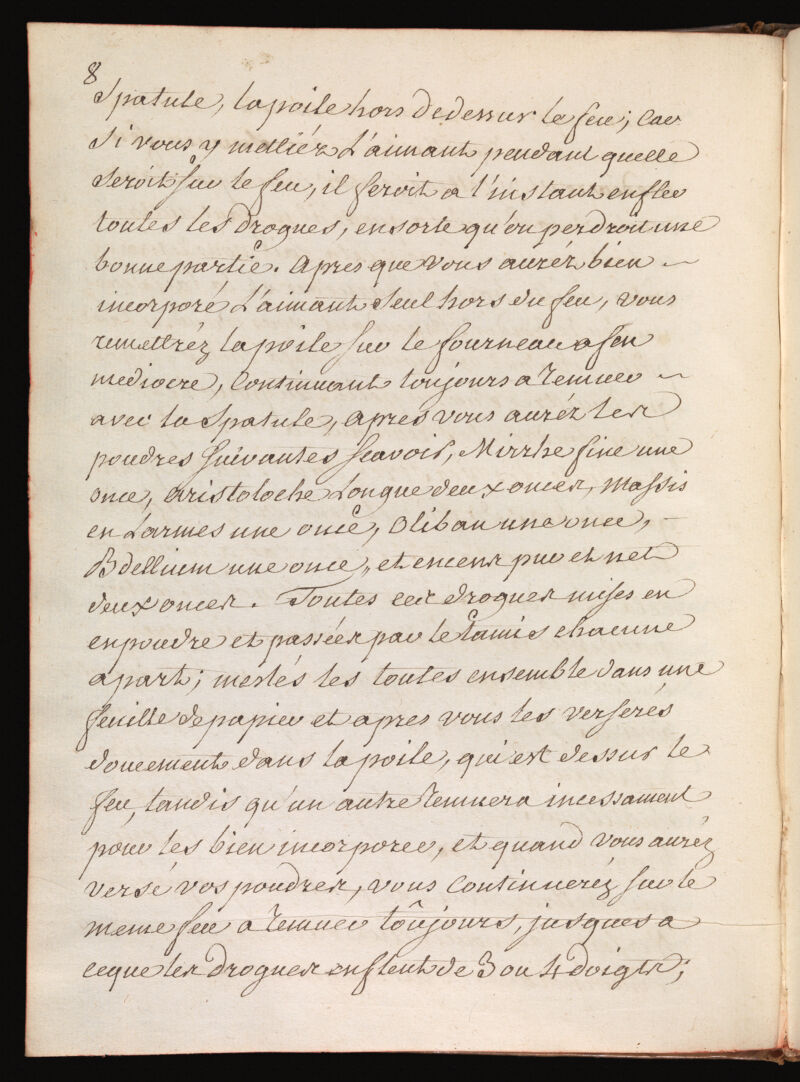 8
Spatule, la poile hors de dessus le feu; Car
Si vous y mettiéz L'aimant pendant quelle
Seroit sur le feu, il feroit a l'instant enfler
toutes les drogues, ensorte qu'on perdroit une
bonne partie. Apres que vous auréz bien
incorporé L'aimant Seul hors du feu, vous
remettréz la poile sur le fourneau a feu
mediocre, Continuant toujours a remuer
avec la Spatule, apres vous auréz les
poudres suivantes scavoir, Mirrhe fine une
once, aristoloche Longue deux onces, Massis
en Larmes une once, Oliban une once,
Bdellium une once, et encens pur et net
deux onces. Toutes ces drogues mises en
en poudre et passées par le tamis chacune
a part; meslés les toutes ensemble dans une
feuille de papier et apres vous les verserés
doucement dans la poile, qui est dessus le
feu, tandis qu'un autre remuera incessament
pour les bien incorporer, et quand vous auréz
versé vos poudres, vous Continueréz sur le
meme feu a remuer toûjours, jusques a
ceque les drogues enflent de 3 ou 4 doigts;